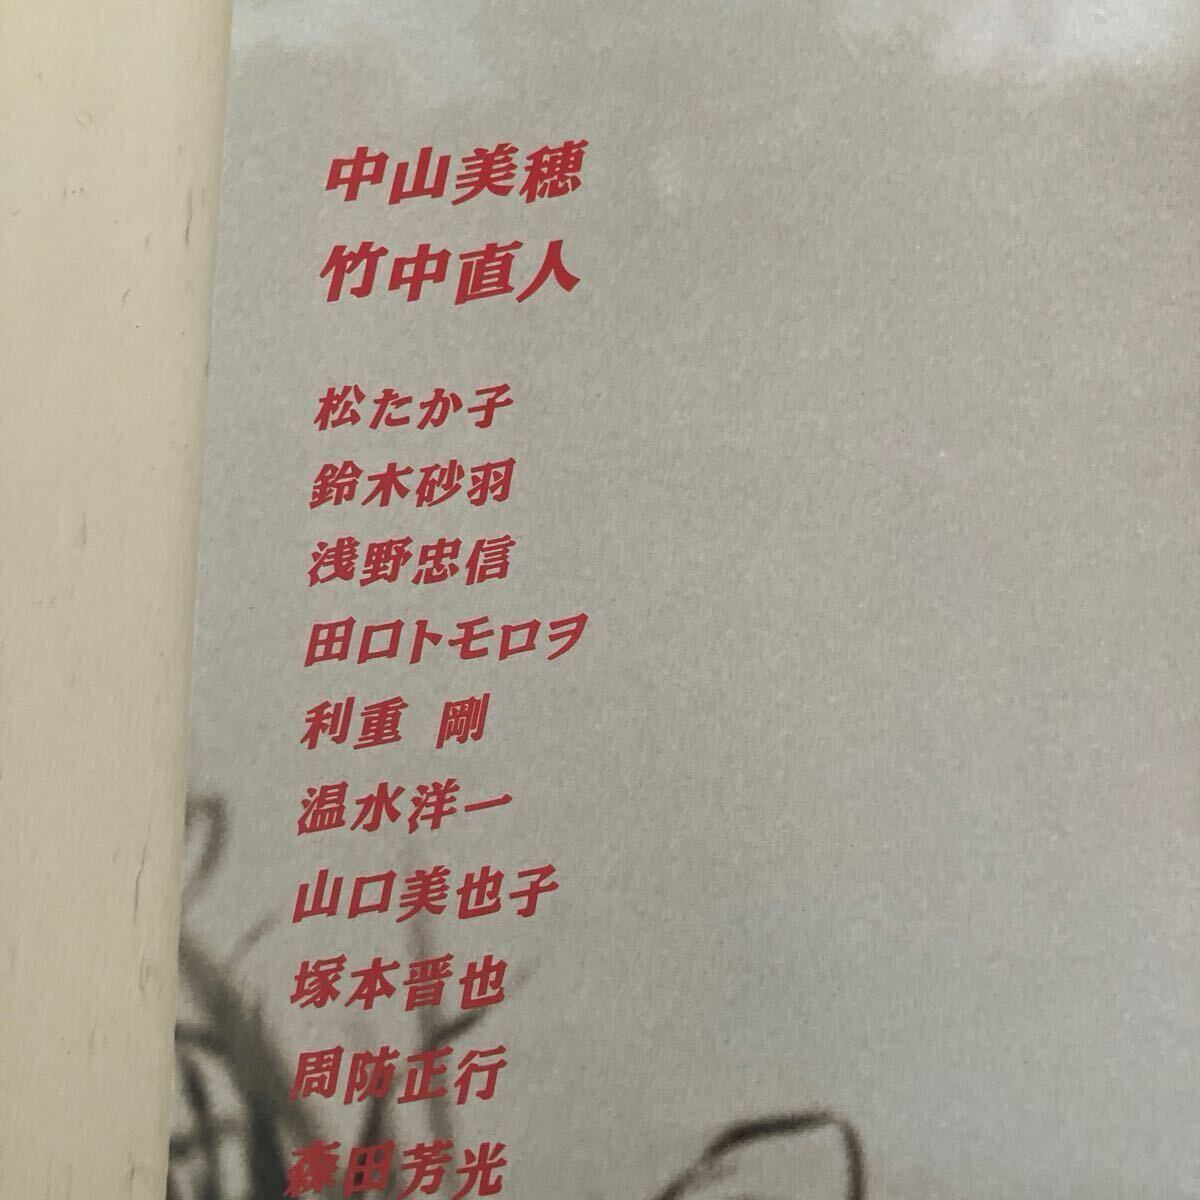 中山美穂
竹中直人
松たか子
鈴木砂羽
浅野忠信
田口トモロヲ
利重 剛
温水洋一
山口美也子
塚本晋也
周防正行
森田芳光